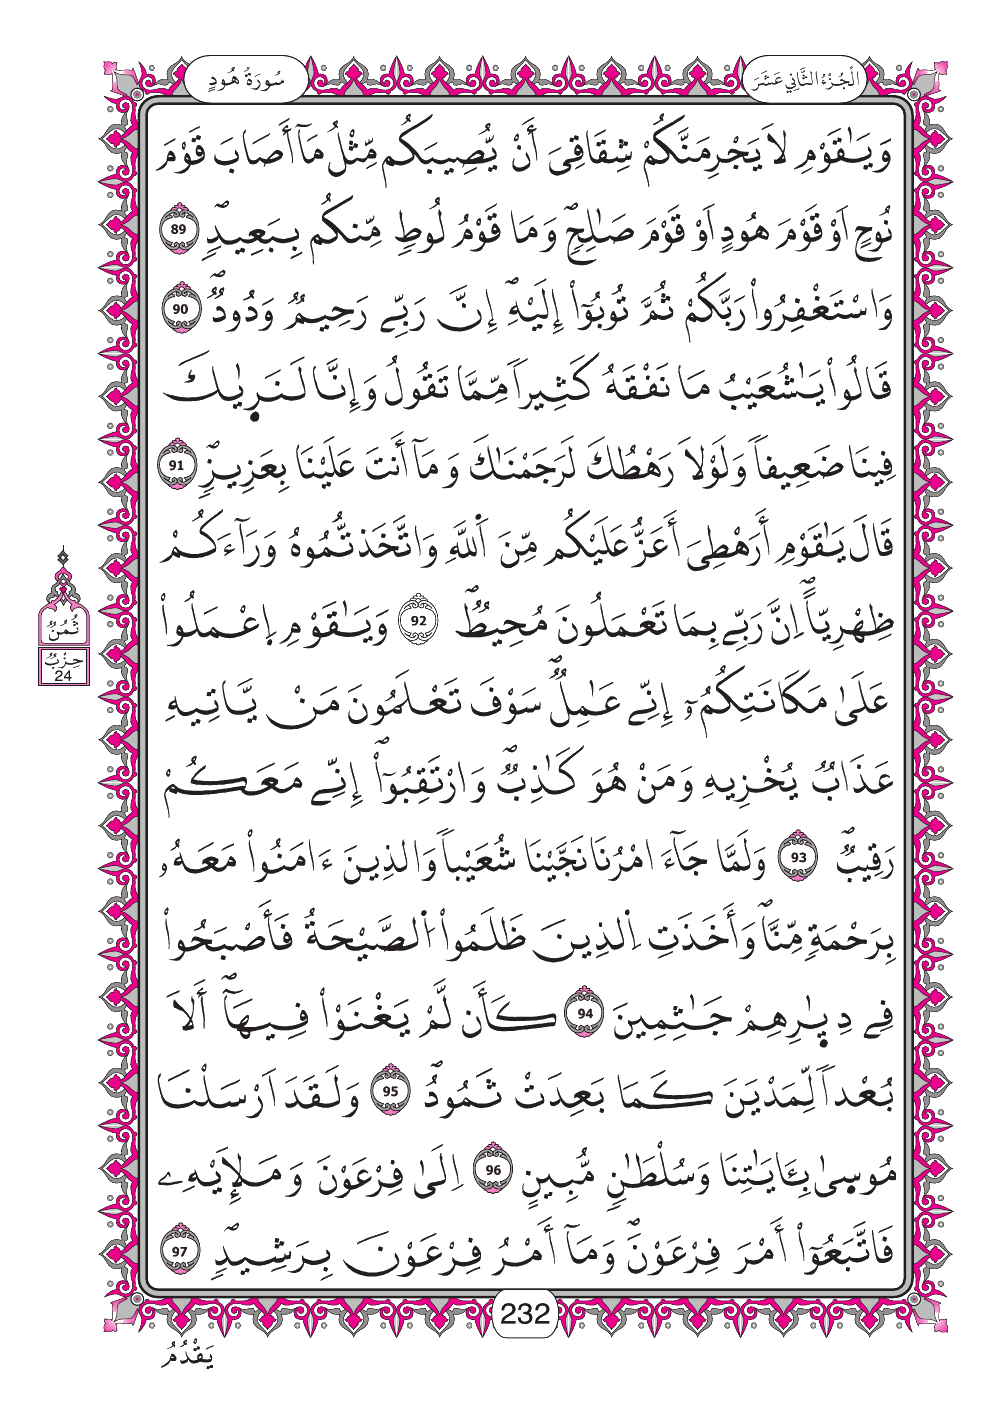 الْجُزْءُ الثَّانِي عَشَرَ
سُورَةُ هُودٍ
وَيَٰقَوْمِ لاَ يَجْرِمَنَّكُمْ شِقَاقِىَ أَنْ يُّصِيبَكُم مِّثْلُ مَآ أَصَابَ قَوْمَ
نُوحٍ اَوْ قَوْمَ هُودٍ اَوْ قَوْمَ صَٰلِحٍۖ وَمَا قَوْمُ لُوطٍ مِّنكُم بِبَعِيدٍۖ 89
وَاسْتَغْفِرُواْ رَبَّكُمْ ثُمَّ تُوبُوٓاْ إِلَيْهِۖ إِنَّ رَبِّے رَحِيمٌ وَدُودٌۖ 90
قَالُواْ يَٰشُعَيْبُ مَا نَفْقَهُ كَثِيراً مِّمَّا تَقُولُ وَإِنَّا لَنَرٜيٰكَ
فِينَا ضَعِيفاً وَلَوْلاَ رَهْطُكَ لَرَجَمْنَٰكَ وَمَآ أَنتَ عَلَيْنَا بِعَزِيزٍۖ 91
قَالَ يَٰقَوْمِ أَرَهْطِىَ أَعَزُّ عَلَيْكُم مِّنَ اَ۬للَّهِ وَاتَّخَذتُّمُوهُ وَرَآءَكُمْ
ظِهْرِيّاًۖ اِنَّ رَبِّے بِمَا تَعْمَلُونَ مُحِيطٌۖ 92 وَيَٰقَوْمِ اِعْمَلُواْ
عَلَىٰ مَكَانَتِكُمُۥٓ إِنِّے عَٰمِلٌۖ سَوْفَ تَعْلَمُونَ مَنْ يَّاتِيهِ
عَذَابٌ يُخْزِيهِ وَمَنْ هُوَ كَٰذِبٌۖ وَارْتَقِبُوٓاْ إِنِّے مَعَكُمْ
رَقِيبٌۖ 93 وَلَمَّا جَآءَ امْرُنَا نَجَّيْنَا شُعَيْباً وَالذِينَ ءَامَنُواْ مَعَهُۥ
بِرَحْمَةٍ مِّنَّاۖ وَأَخَذَتِ اِ۬لذِينَ ظَلَمُواْ اُ۬لصَّيْحَةُ فَأَصْبَحُواْ
فِے دِيٰٜرِهِمْ جَٰثِمِينَ 94 كَأَن لَّمْ يَغْنَوْاْ فِيهَآۖ أَلاَ
بُعْداً لِّمَدْيَنَ كَمَا بَعِدَتْ ثَمُودُۖ 95 وَلَقَدَ اَرْسَلْنَا
مُوسٜىٰ بِـَٔايَٰتِنَا وَسُلْطَٰنٍ مُّبِينٍ 96 اِلَىٰ فِرْعَوْنَ وَمَلإِيْهِۦ
فَاتَّبَعُوٓاْ أَمْرَ فِرْعَوْنَۖ وَمَآ أَمْرُ فِرْعَوْنَ بِرَشِيدٍۖ 97
ثُمُنٌ
حِزْبٌ
24
232
يَقْدُمُ